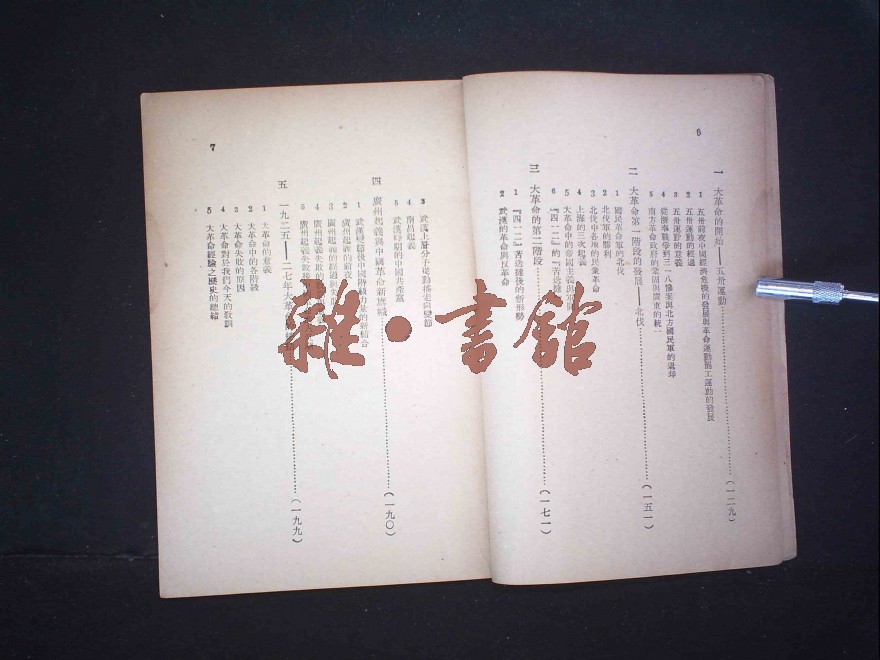 6
一 大革命的開始——五卅運動……(一二九)
1 五卅前夜中國經濟危機的發展與革命運動罷工運動的發展
2 五卅運動的經過
3 五卅運動的意義
4 從濟奉戰爭到三一八慘案與北方國民軍的退却
5 南方革命政府的鞏固與廣東的統一
二 大革命第一階段的發展——北伐……(一五一)
1 國民革命軍的北伐
2 北伐軍的勝利
3 北伐中各地的民衆革命
4 上海的三次起義
5 大革命中的帝國主義與
6 『四一二』的
三 大革命的第二階段……(一七一)
1 『四一二』後的新形勢
2 武漢的革命與反革命
7
3 武漢上層分子從動搖走向變節
4 南昌起義
5 武漢時期的中國共產黨
四 廣州起義與中國革命新旗幟……(一九〇)
1 武漢變節後中國階級力量的新結合
2 廣州起義的前夜
3 廣州起義的經過與失敗
4 廣州起義失敗的
5 廣州起義失敗後
五 一九二五——二七年大革命……(一九九)
1 大革命的意義
2 大革命中的各階級
3 大革命失敗的原因
4 大革命對於我們今天的教訓
5 大革命經驗之歷史的總結
雜·書館